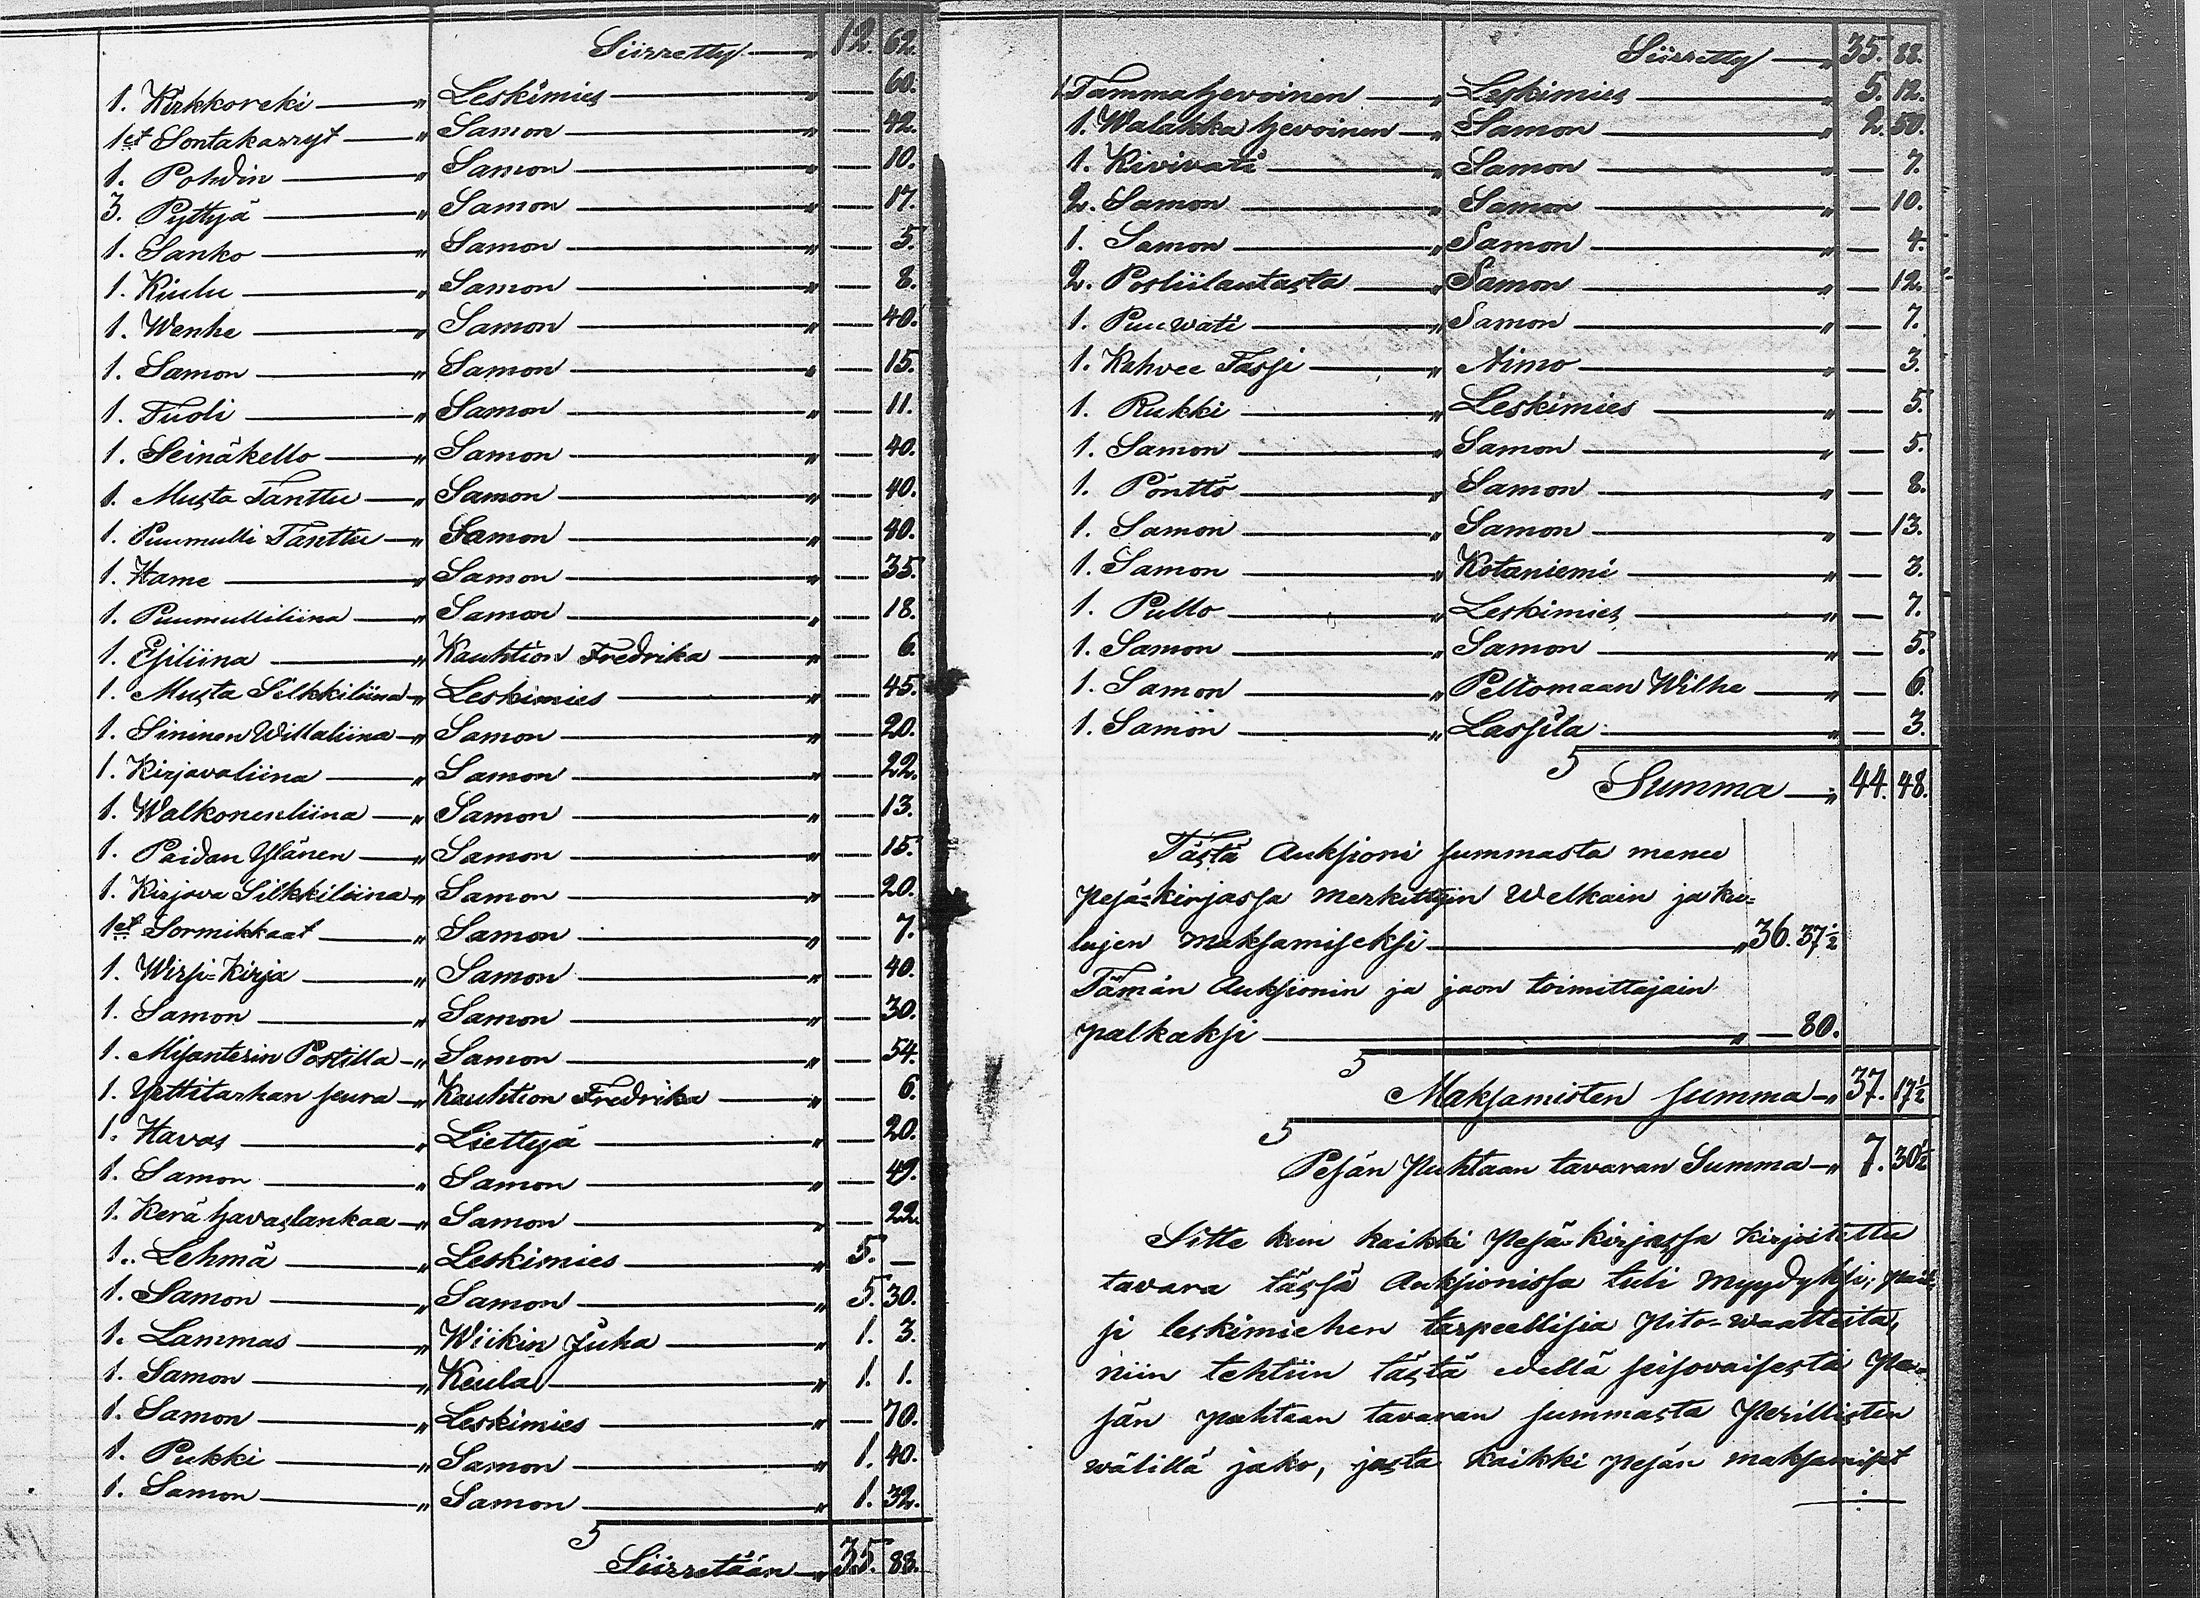 Siirretty — „ 12. 62.
1. Kirkkoreki — „ Leskimies — „ — 60.
1et Sontakarryt — „ Samon — „ — 42.
1. Pohdin — „ Samon — „ — 10.
3. Pyttyä — „ Samon — „ — 17.
1. Sanko — „ Samon — „ — 5.
1. Kiulu — „ Samon — „ — 8.
1. Wenhe — „ Samon — „ — 40.
1. Samon — „ Samon — „ — 15.
1. Tuoli — „ Samon — „ — 11.
1. Seinäkello — „ Samon — „ — 40.
1. Musta Tanttu — „ Samon — „ — 40.
1. Puumulli Tanttu — „ Samon — „ — 40.
1. Hame — „ Samon — „ — 35.
1. Puumulliliina — „ Samon — „ — 18.
1. Esiliina — „ Kauhtion Fredrika — „ — 6.
1. Musta Silkkiliina — „ Leskimies — „ — 45.
1. Sininen Willaliina — „ Samon — „ — 20.
1. Kirjavaliina — „ Samon — „ — 22.
1. Walkonenliina — „ Samon — „ — 13.
1. Paidan Ylänen — „ Samon — „ — 15.
1. Kirjava Silkkiliina — „ Samon — „ — 20.
1et Sormikkaat — „ Samon — „ — 7.
1. Wirsi-Kirja — „ Samon — „ — 40.
1. Samon — „ Samon — „ — 30.
1. Misanterin Postilla — „ Samon — „ — 54.
1. Yrttitarhan seura — „ Kauhtion Fredrika — „ — 6.
1. Havas — „ Liettyä — „ — 20.
1. Samon — „ Samon — „ — 49.
1. Kerä havaslankaa — „ Samon — „ — 22.
1. Lehmä — „ Leskimies — „ 5. —
1. Samon — „ Samon — „ 5. 30.
1. Lammas — „ Wiikin Juha — „ 1. 3.
1. Samon — „ Keula — „ 1. 1.
1. Samon — „ Leskimies — „ — 70.
1. Pukki — „ Samon — „ 1. 40.
1. Samon — „ Samon — „ 1. 32.
Siirretään — „ 35. 88.
Siirretty — „ 35. 88.
1 Tammahevoinen — „ Leskimies — „ 5. 12.
1. Walakka hevoinen — „ Samon — „ 2. 50.
1. Kivivati — „ Samon — „ — 7.
2. Samon — „ Samon — „ — 10.
1. Samon — „ Samon — „ — 4.
2. Posliilautasta — „ Samon — „ — 12.
1. Puuwati — „ Samon — „ — 7.
1. Kahvee Tassi — „ Aimo — „ — 3.
1. Rukki — „ Leskimies — „ — 5.
1. Samon — „ Samon — „ — 5.
1. Pönttö — „ Samon — „ — 8.
1. Samon — „ Samon — „ — 13.
1. Samon — „ Kotaniemi — „ — 3.
1. Pullo — „ Leskimies — „ — 7.
1. Samon — „ Samon — „ — 5.
1. Samon — „ Peltomaan Wilhe — „ — 6.
1. Samon — „ Lassila — „ — 3.
Summa — „ 44. 48.
Tästä Auksioni summasta menee
pesä-kirjassa merkittyin Welkain ja ku=
lujen maksamiseksi — „ 36. 37½
Tämän Auksionin ja jaon toimittajain
palkaksi — „ — 80.
Maksamisten summa — „ 37. 17½
Pesän puhtaan tavaran Summa — „ 7. 30½
Sitte kun kaikki pesä-kirjassa kirjoitettu
tavara tässä Auksionissa tuli myydyksi, pait=
si leskimiehen tarpeellisia pito-waatteita,
niin tehtiin tästä edellä seisovaisesta pe=
sän puhtaan tavaran summasta perillisten
wälillä jako, josta kaikki pesän maksamiset